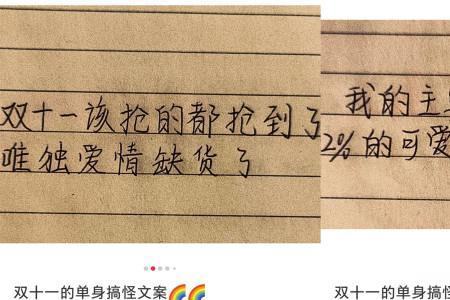 双十一该抢的都抢到了
唯独爱情缺货了
我的主
2%的可爱
双十一的单身搞怪文案🌈🌈
双十一的单身搞